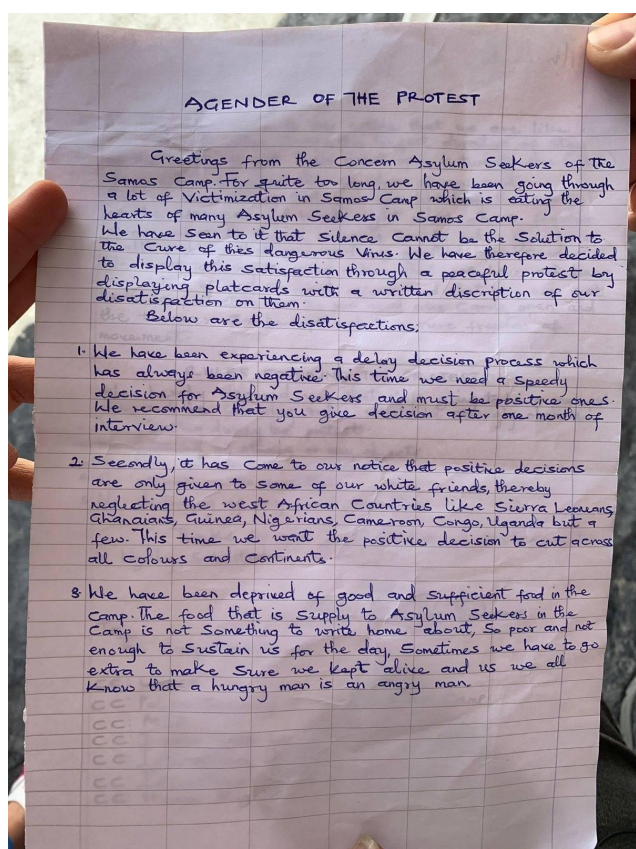 AGENDER OF THE PROTEST
Greetings from the Concern Asylum Seekers of the
Samos Camp. For quite too long, we have been going through
a lot of Victimization in Samos Camp which is eating the
hearts of many Asylum Seekers in Samos Camp.
We have seen to it that Silence Cannot be the Solution to
the Cure of this dangerous Virus. We have therefore decided
to display this Satisfaction through a peaceful protest by
displaying platcards with a written discription of our
disatisfaction on them.
Below are the disatisfactions;
1. We have been experiencing a delay decision process which
has always been negative. This time we need a Speedy
decision for Asylum Seekers and must be positive ones.
We recommend that you give decision after one month of
interview.
2. Secondly, it has Come to our notice that positive decisions
are only given to Some of our white friends, thereby
neglecting the west African Countries like Sierra Leoneans,
Ghanaians, Guinea, Nigerians, Cameroon, Congo, Uganda but a
few. This time we want the positive decision to cut across
all Colours and Continents.
3. We have been deprived of good and Sufficient food in the
Camp. The food that is Supply to Asylum Seekers in the
Camp is not Something to write home about, So poor and not
enough to Sustain us for the day, Sometimes we have to go
extra to make Sure we kept alive and us we all
Know that a hungry man is an angry man.